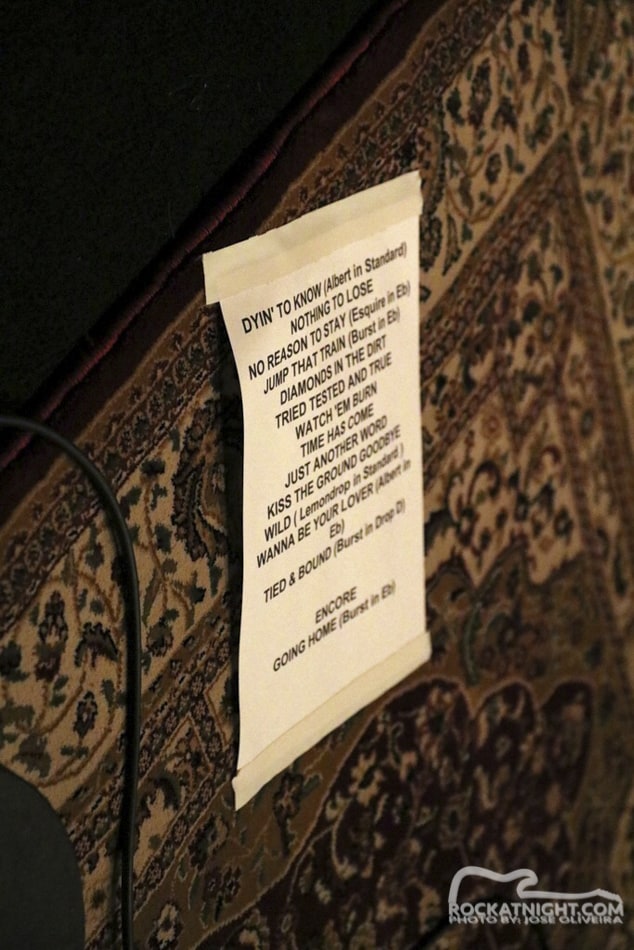 DYIN' TO KNOW (Albert in Standard)
NOTHING TO LOSE
NO REASON TO STAY (Esquire in Eb)
JUMP THAT TRAIN (Burst in Eb)
DIAMONDS IN THE DIRT
TRIED TESTED AND TRUE
WATCH 'EM BURN
TIME HAS COME
JUST ANOTHER WORD
KISS THE GROUND GOODBYE
WILD ( Lemondrop in Standard )
WANNA BE YOUR LOVER (Albert in
Eb)
TIED & BOUND (Burst in Drop D)
ENCORE
GOING HOME (Burst in Eb)
ROCKATNIGHT.COM
PHOTO BY: JOSE OLIVEIRA